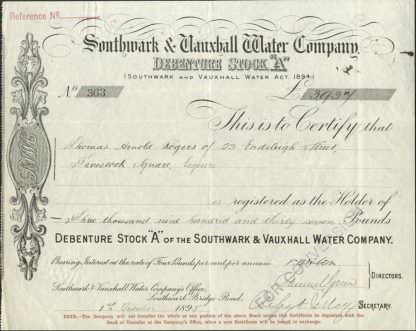 Reference No
Southwark & Vauxhall Water Company
DEBENTURE STOCK "A"
(SOUTHWARK AND VAUXHALL WATER ACT. 1894.)
No 363 £ 3937
This is to Certify that
Thomas Arnold Rogers of 23 Endsleigh Street,
Tavistock Square, Esquire
is registered as the Holder of
Three thousand nine hundred and thirty seven Pounds
DEBENTURE STOCK "A" OF THE SOUTHWARK & VAUXHALL WATER COMPANY.
Bearing Interest at the rate of Four Pounds per cent per annum.
DIRECTORS.
Southwark & Vauxhall Water Company's Office,
Southwark Bridge Road,
SECRETARY.
NOTE.—The Company will not transfer the whole or any portion of the above Stock unless this Certificate be deposited with the
Deed of Transfer at the Company's Office, when a new Certificate will be issued in exchange.